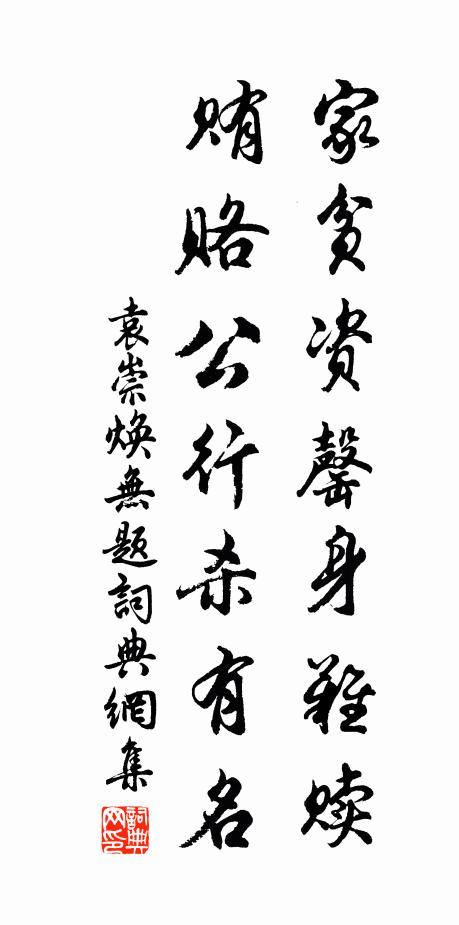 家贫资罄身难赎
贿赂公行杀有名
袁崇焕無题詞典網集
詞典
网印